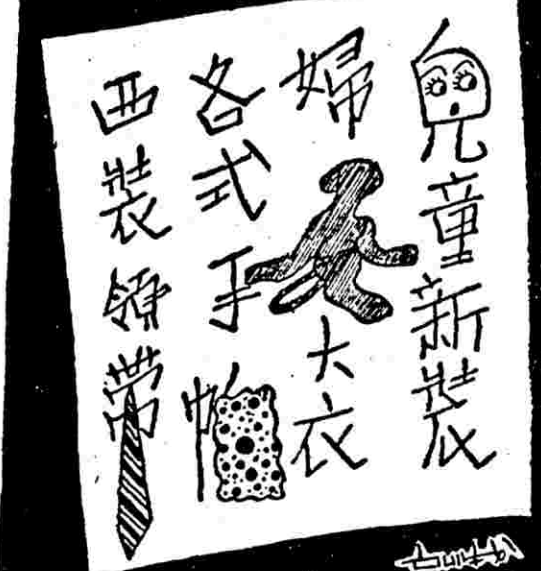 兒童新裝
婦女大衣
各式手帕
西裝領帶